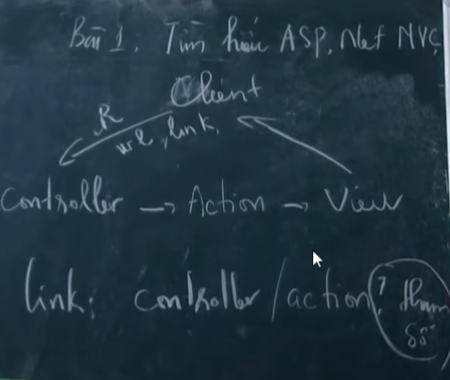 Bài 1. Tìm hiểu ASP.Net MVC
Client
R
url, link,
Controller → Action → View
link: controller/action? tham
số